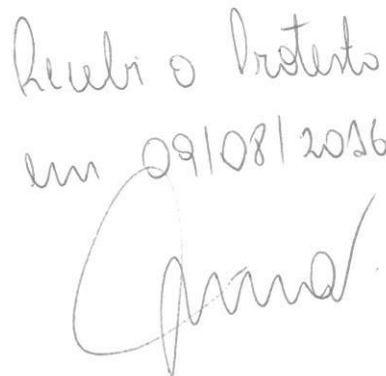 Recebi o Protesto
em 09/08/2016